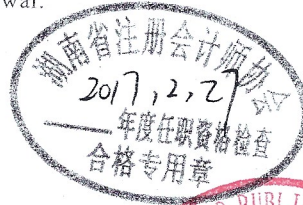 wal.
湖南省注册会计师协会
2017,2,27
年度任职资格检查
合格专用章
PUBLI